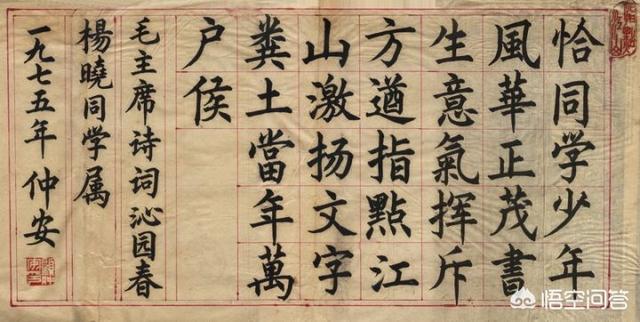 恰同学少年
風華正茂書
生意氣揮斥
方遒指點江
山激扬文字
糞土當年萬
户侯
毛主席诗词沁园春
楊曉同学属
一九七五年 仲安
悟空问答